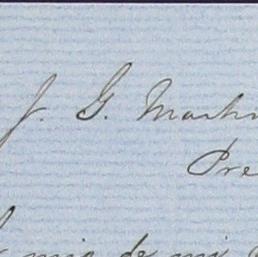 J. G. Martin
Pre
mio de mi